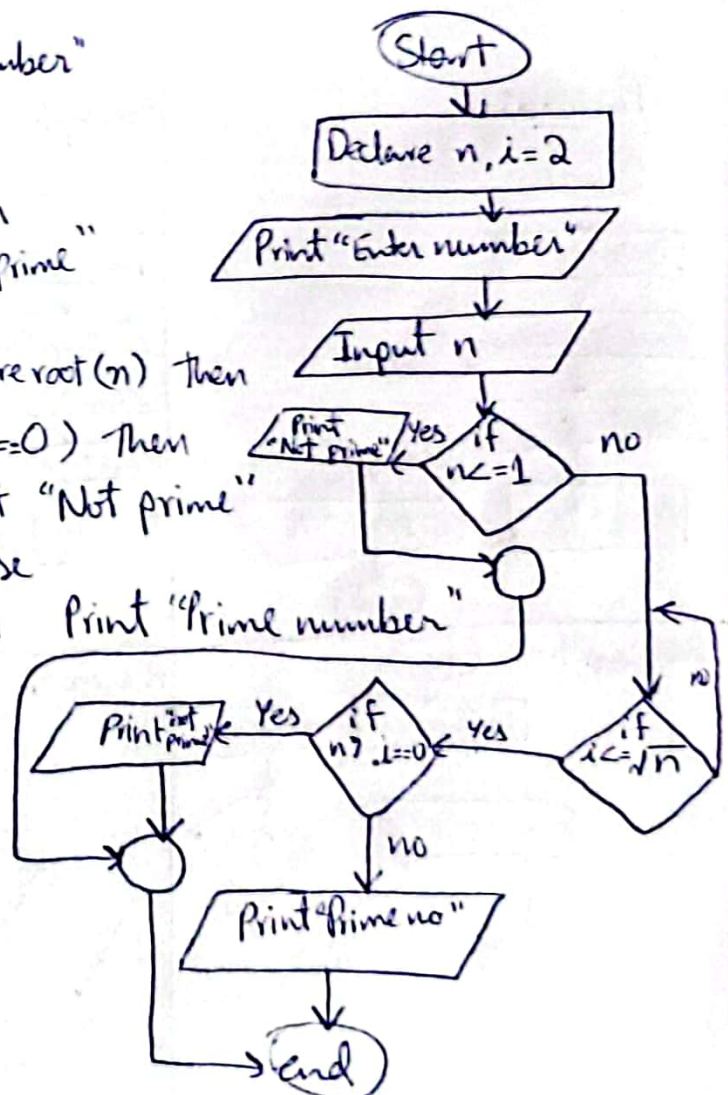 mber"
Prime"
re root (n) then
==0) then
t "Not prime"
se
Print "Prime number"
Start
Declare n, i=2
Print "Enter number"
Input n
if
n<=1
Yes
Print
"Not prime"
no
if
i<=√n
no
Yes
if
i==0
Yes
Print "not
prime"
no
Print "Prime no"
end